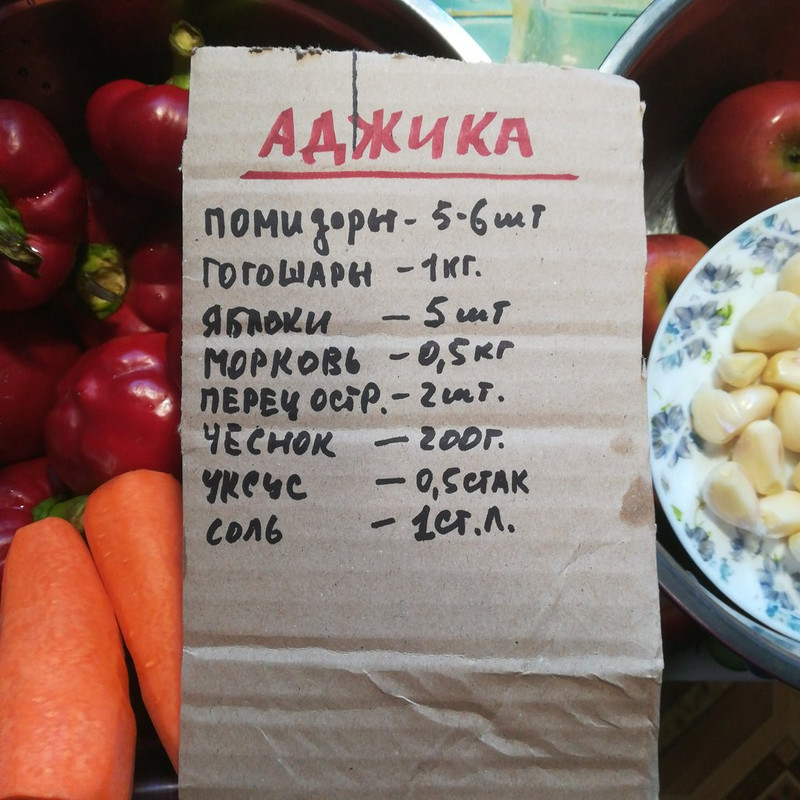 АДЖИКА
ПОМИДОРЫ - 5-6 шт
ГОГОШАРЫ - 1кг.
ЯБЛОКИ - 5 шт
МОРКОВЬ - 0,5 кг
ПЕРЕЦ ОСТР. - 2шт.
ЧЕСНОК - 200г.
УКСУС - 0,5 СТАК
СОЛЬ - 1 ст.л.